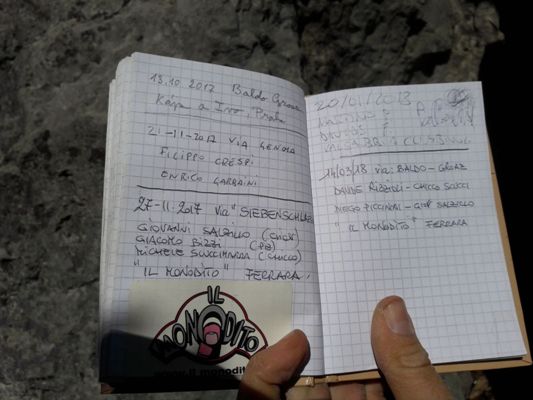 13.10.2017 Baldo
Kája a Ivo, Praha
21-11-2017 VIA GENOMA
FILIPPO CRESPI
ENRICO GARBAINI
27-11-2017 Via "SIEBENSCHLÄFER
GIOVANNI SALZILLO (GIOSY)
GIACOMO BIZZI (PB)
MICHELE SUCCIMARRA (CHUCCO)
"IL MONODITO" FERRARA
IL
MONODITO
www.il monodit
20/01/2018
14/03/18 via: BALDO-GRAZ
DAVIDE RIZZIOLI - CHUCCO SUCCI
DIEGO PICCINARI - GIOSY SALZILLO
"IL MONODITO" FERRARA